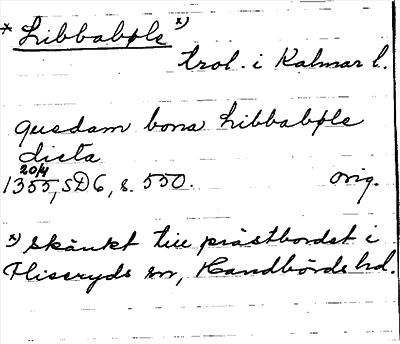 * Libbabøle x)
trol. i Kalmar l.
quedam bona Libbabøle
dicta
20/4
1355, SD6, s. 550. orig.
x) skänkt till prästbordet i
Fliseryds sn, Handbörds hd.